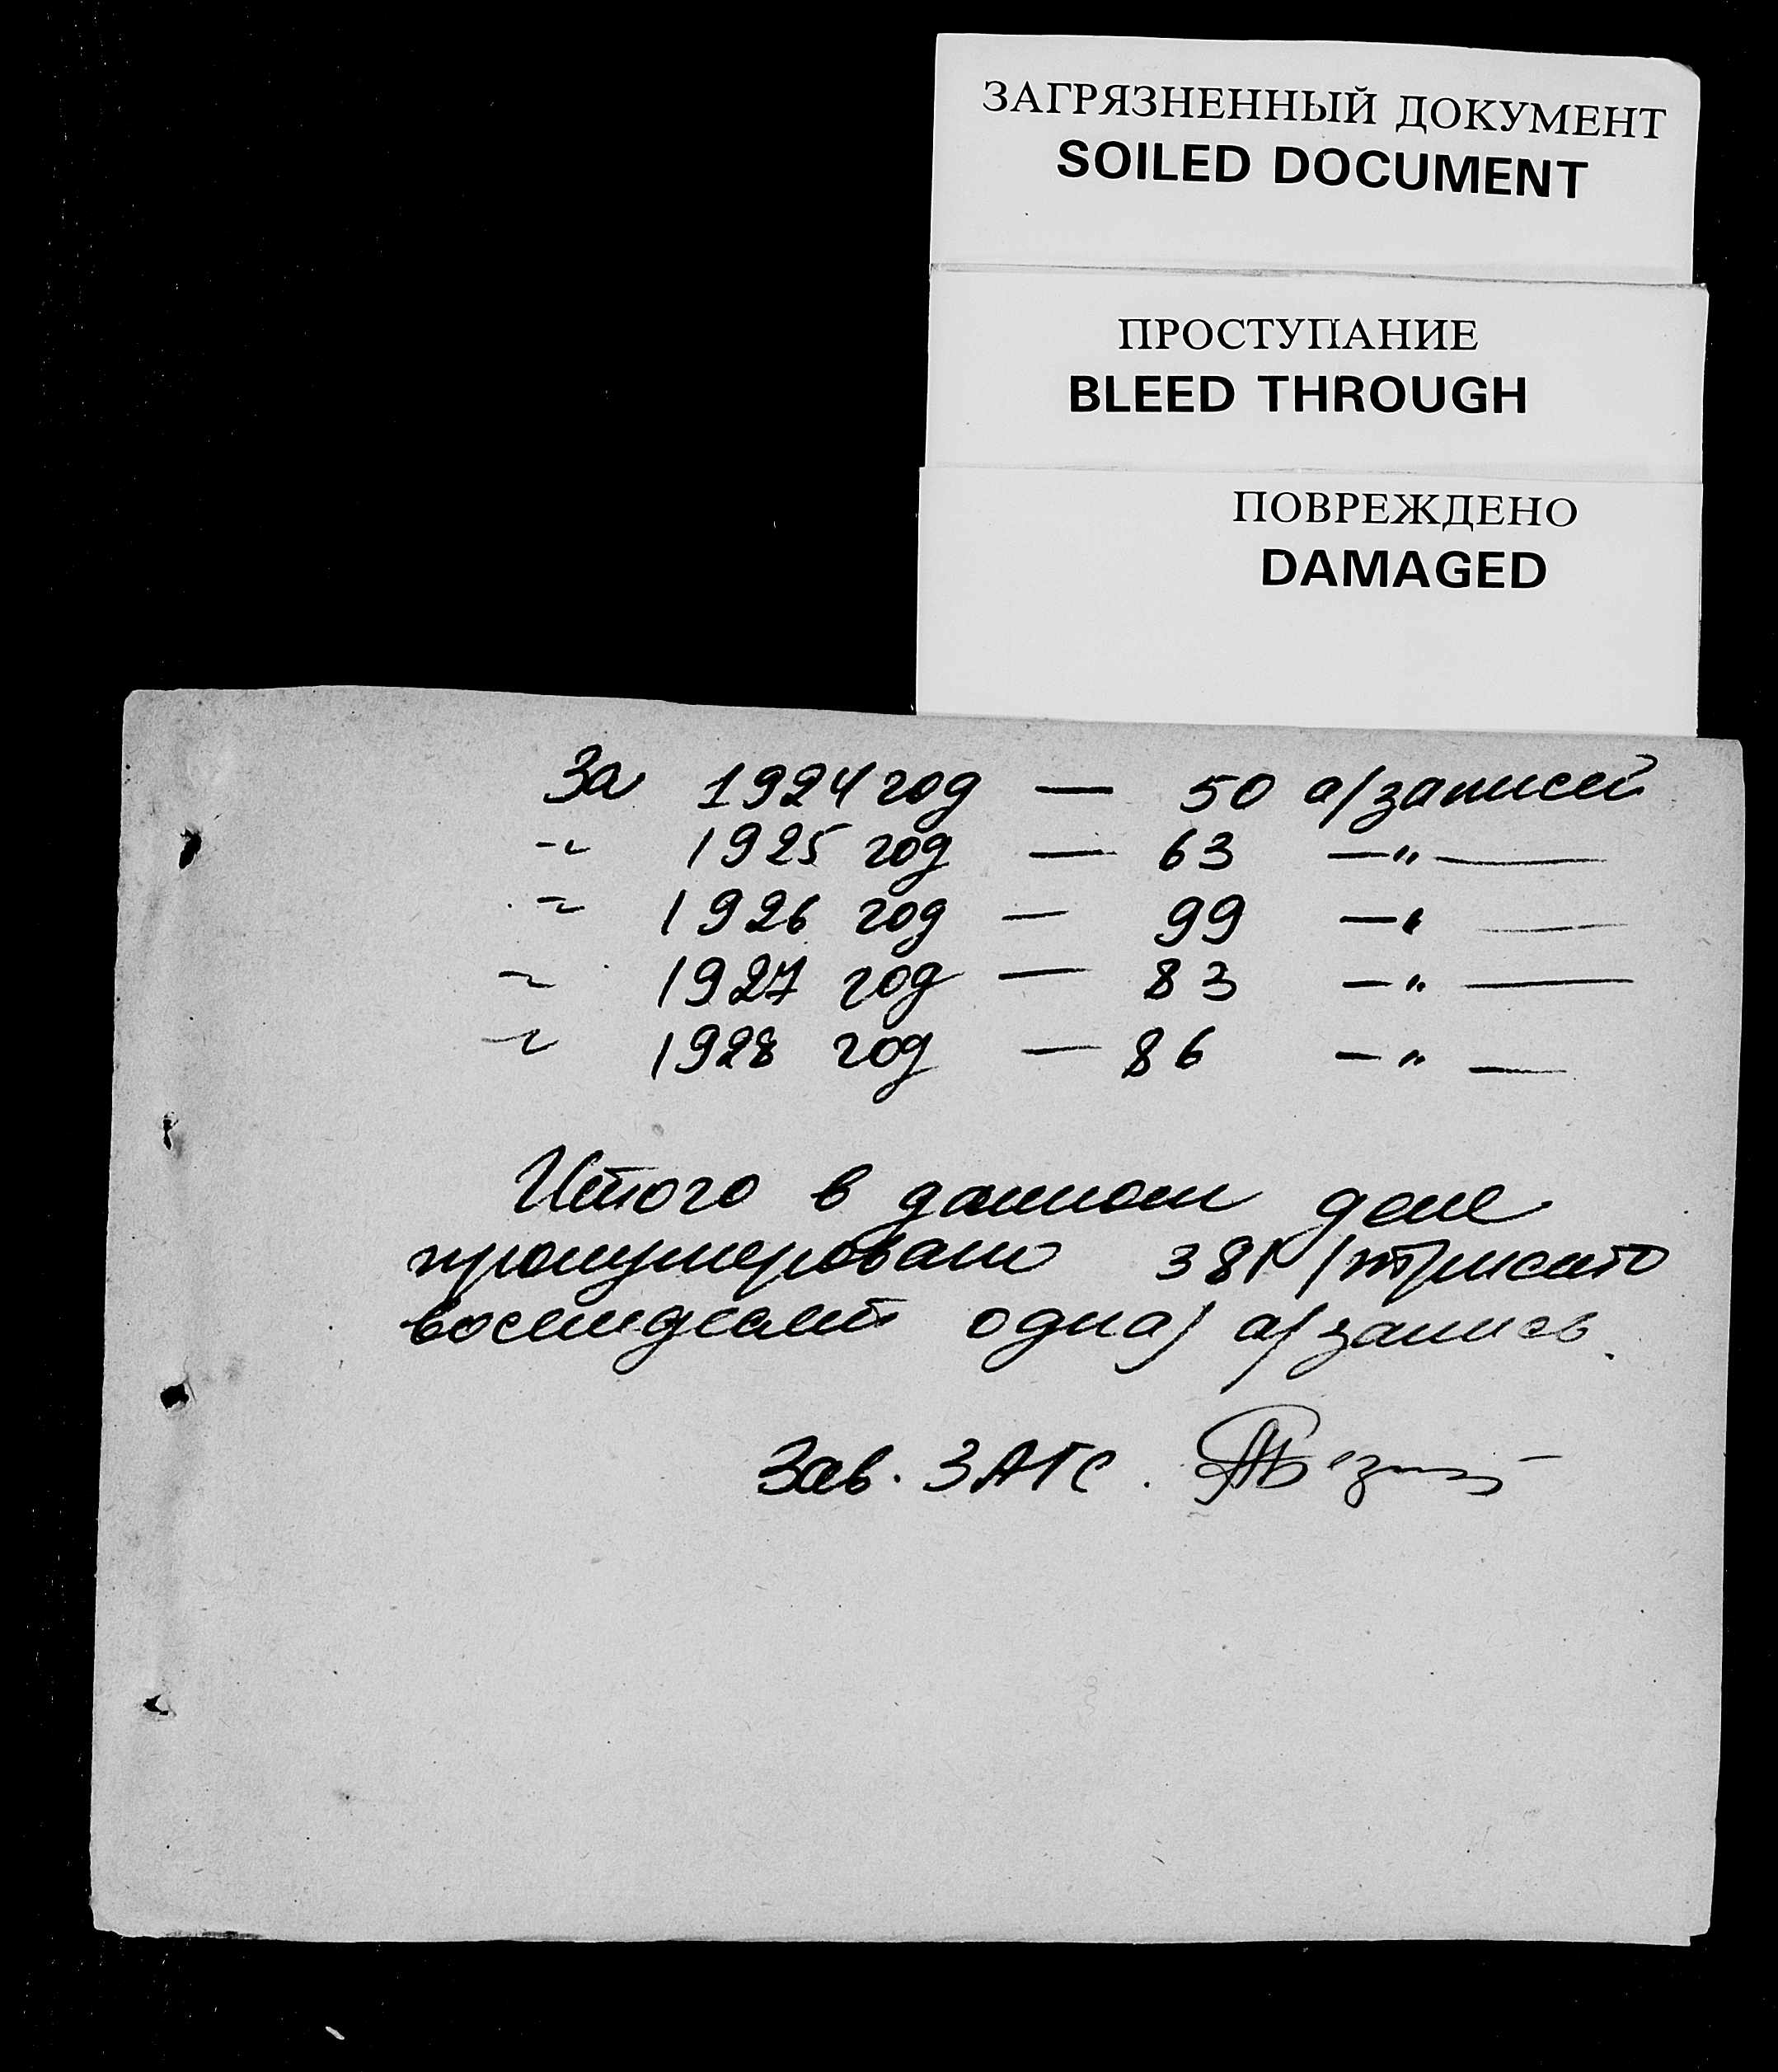 ЗАГРЯЗНЕННЫЙ ДОКУМЕНТ
SOILED DOCUMENT
ПРОСТУПАНИЕ
BLEED THROUGH
ПОВРЕЖДЕНО
DAMAGED
За 1924 год — 50 а/записей
-"- 1925 год — 63 —"—
-"- 1926 год — 99 —"—
-"- 1927 год — 83 —"—
-"- 1928 год — 86 —"—
Итого в данном деле
пронумеровано 381 /триста
восемдесят одна/ а/запись.
Зав. ЗАГС.